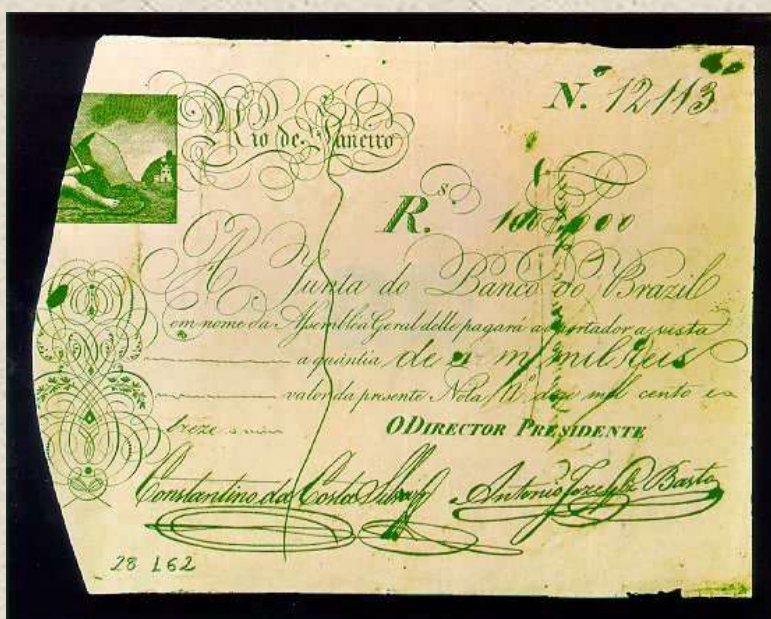 N.º 12113
Rio de Janeiro
R.s
A Junta do Banco do Brazil
em nome da Assemblea Geral delle pagará ao portador a vista
a quantia de mil Reis
valor da presente Nota N.º doze mil cento e
treze
O DIRECTOR PRESIDENTE
Constantino da Costa
Antonio Joze Basto
28 162